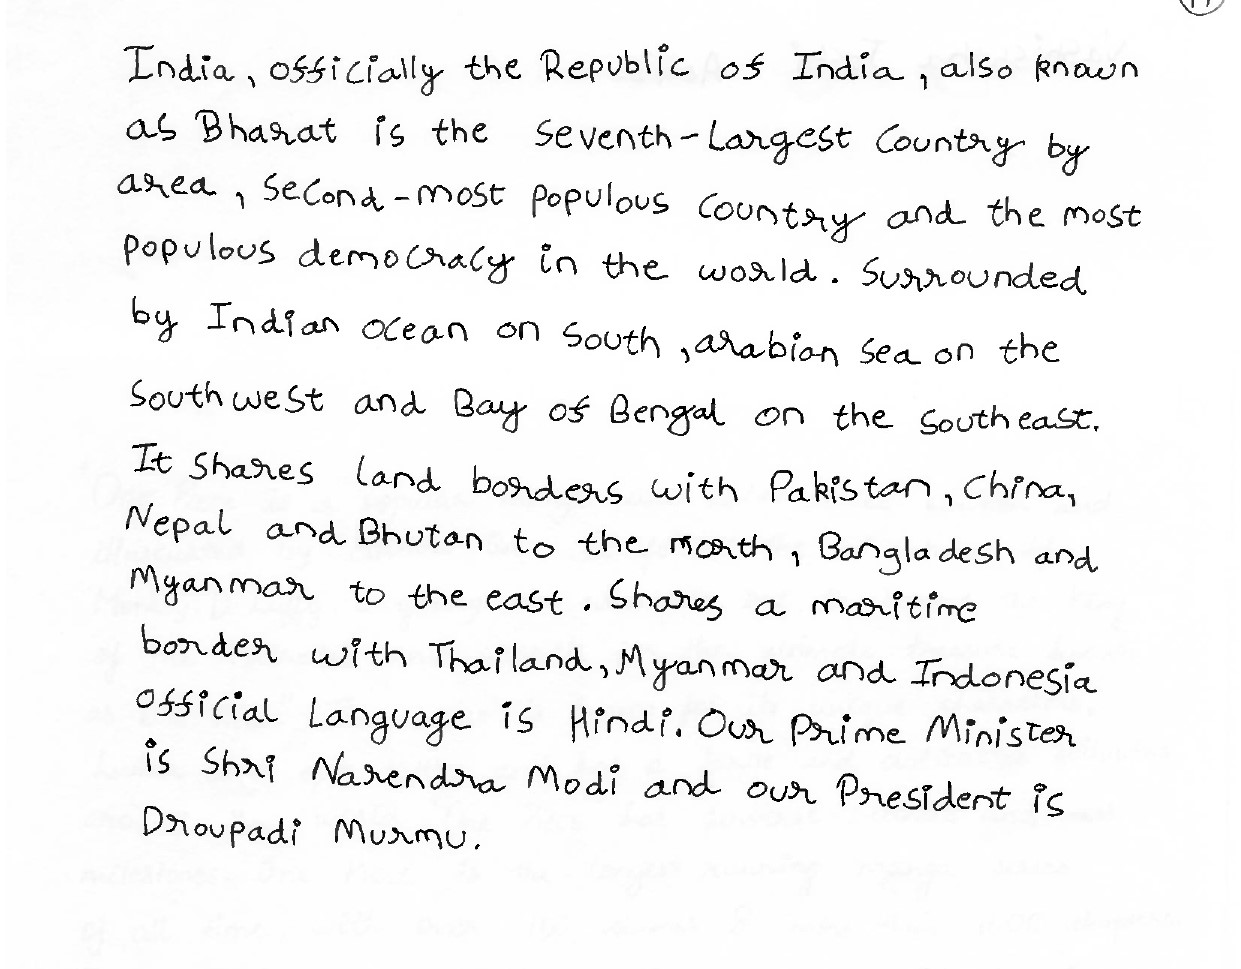 India, officially the Republic of India, also known
as Bharat is the seventh-Largest Country by
area, Second-most populous country and the most
populous democracy in the world. Surrounded
by Indian ocean on south, arabian sea on the
Southwest and Bay of Bengal on the southeast.
It shares land borders with Pakistan, China,
Nepal and Bhutan to the north, Bangladesh and
Myanmar to the east. Shares a maritime
border with Thailand, Myanmar and Indonesia
official Language is Hindi. Our Prime Minister
is Shri Narendra Modi and our President is
Droupadi Murmu.